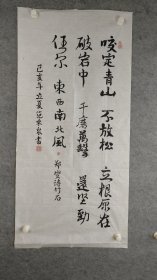 咬定青山 不放松 立根原在
破岩中 千磨萬擊 還坚劲
任尔 東西南北風 郑燮诗竹石
己亥年 立夏 書